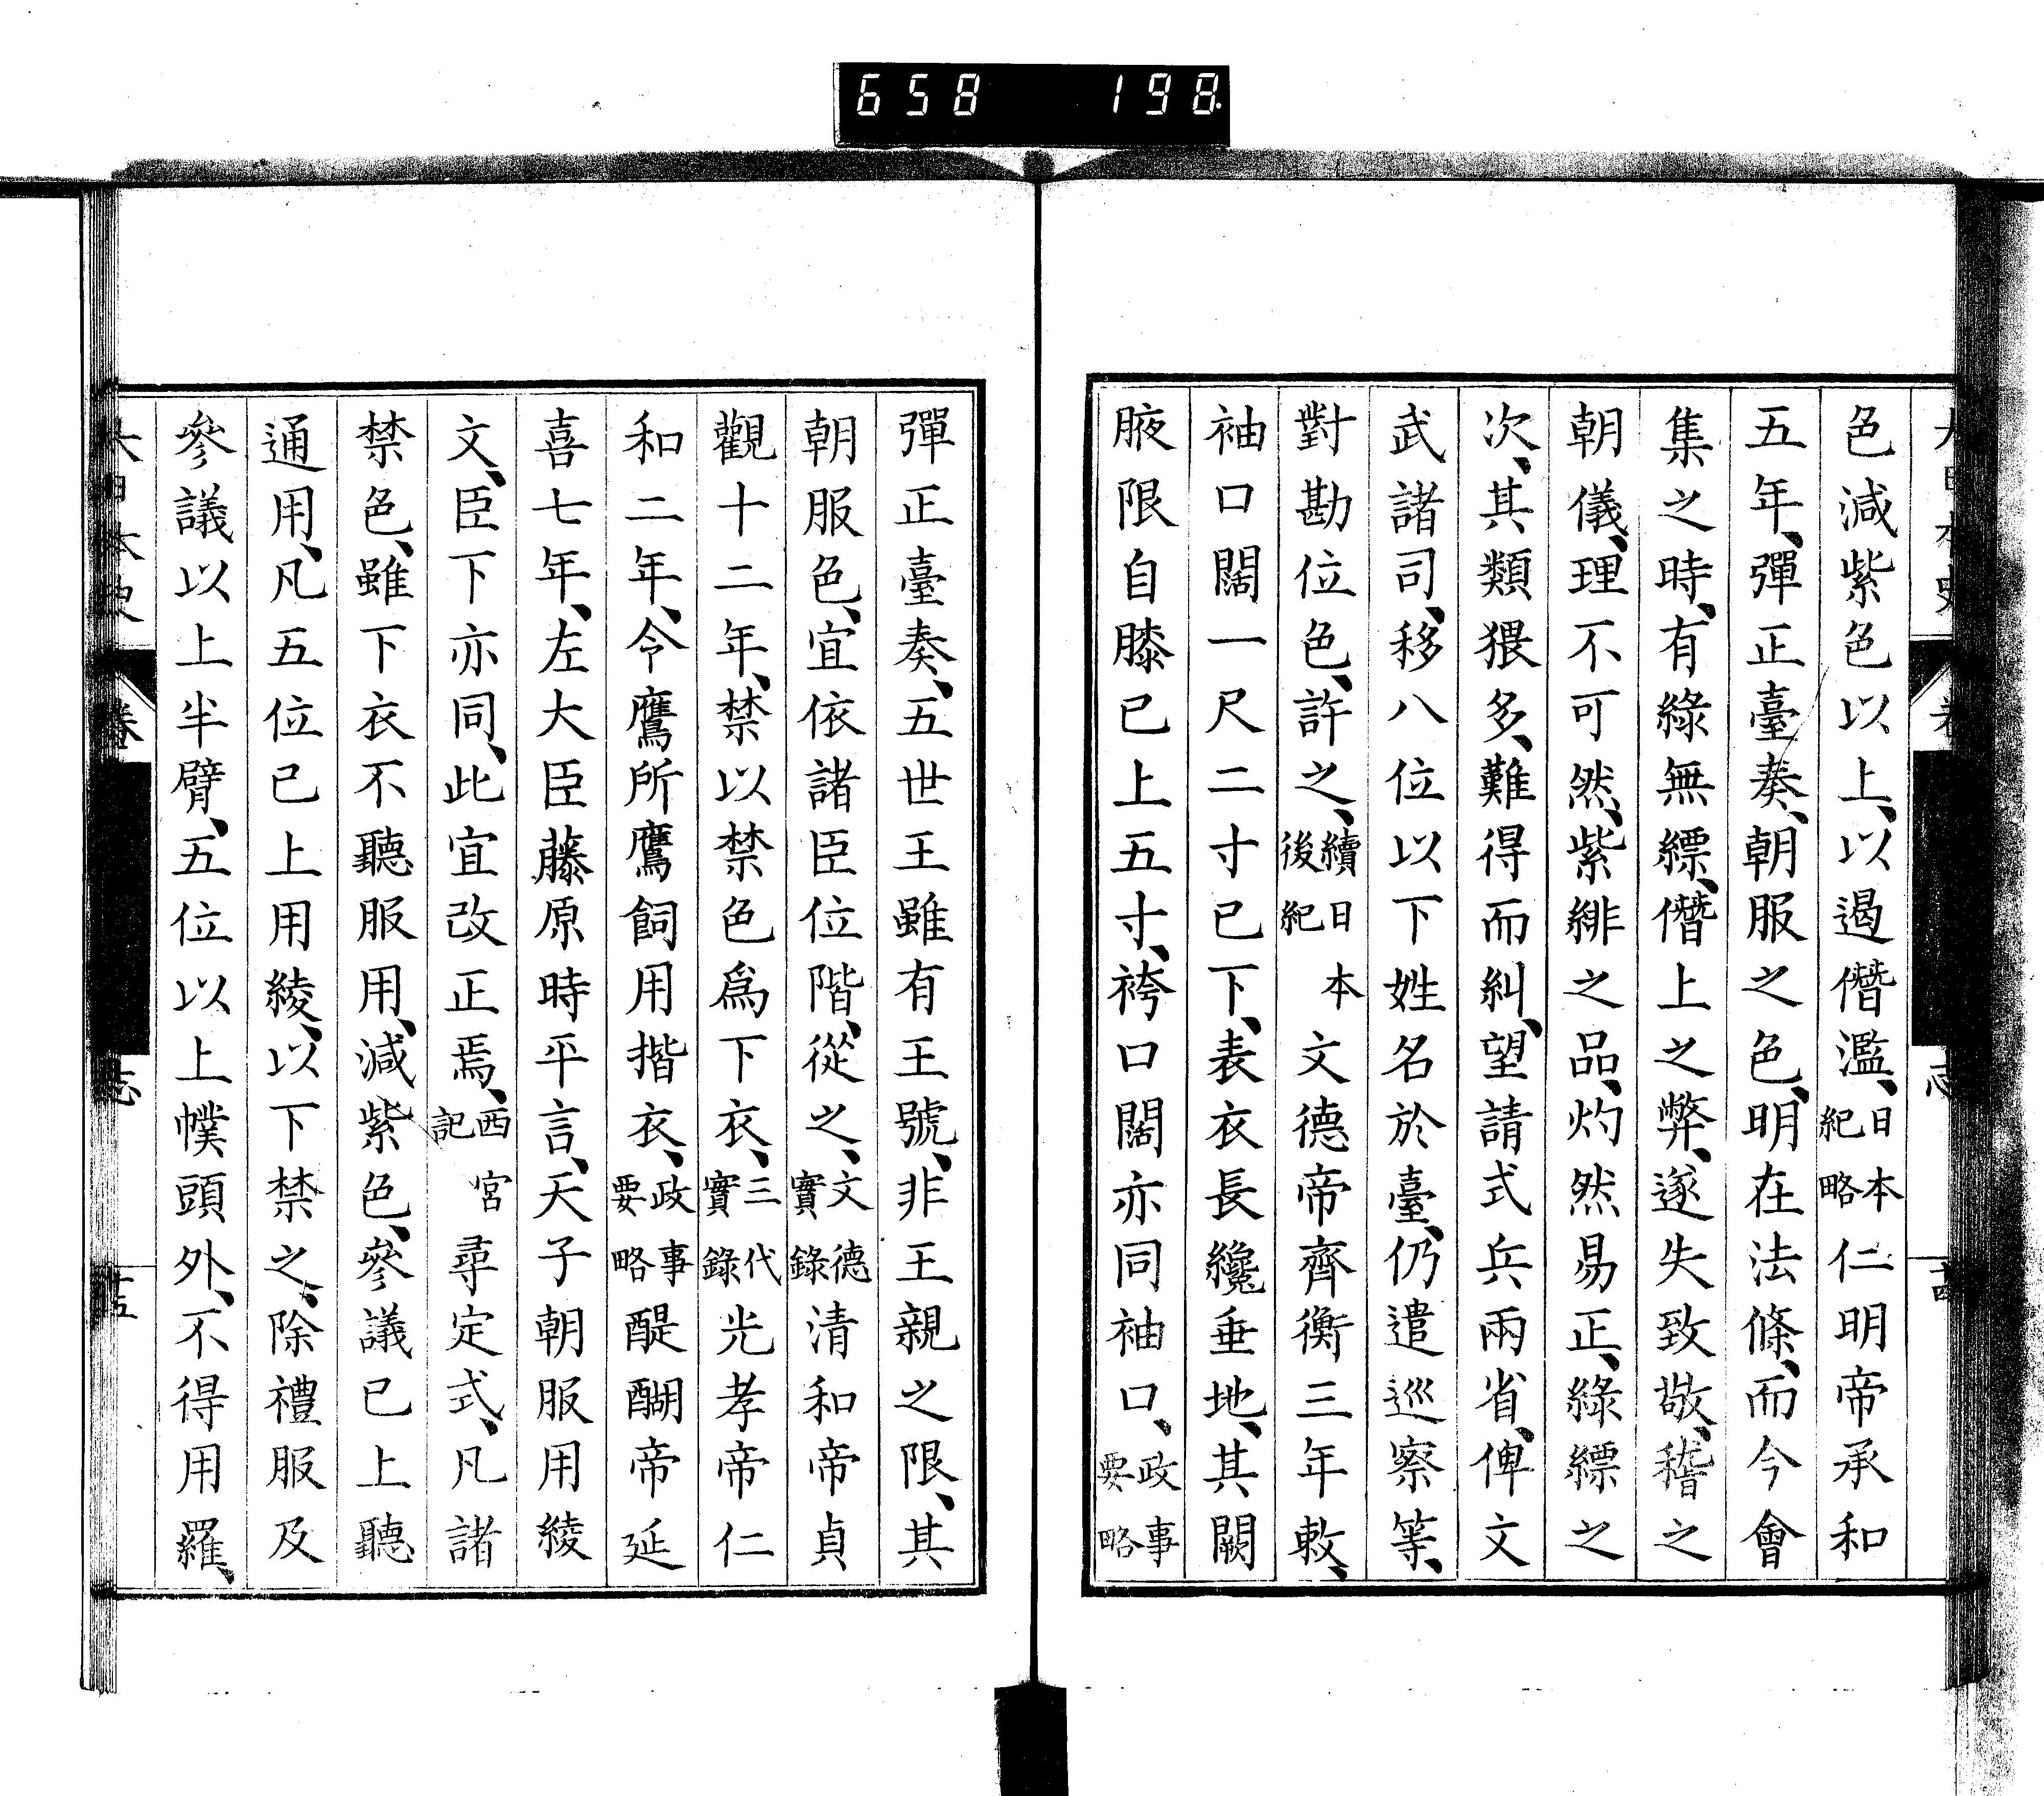 658 198
色減紫色以上、以遏僭濫、日本紀略仁明帝承和
五年、彈正臺奏、朝服之色、明在法條、而今會
集之時、有綠無縹、僭上之弊、遂失致敬、稽之
朝儀、理不可然、紫緋之品、灼然易正、綠縹之
次、其類猥多、難得而糾、望請式兵兩省、俾文
武諸司、移八位以下姓名於臺、仍遣巡察等、
對勘位色、許之、續日本後紀文德帝齊衡三年敕、
袖口闊一尺二寸已下、表衣長纔垂地、其闕
腋限自膝已上五寸、袴口闊亦同袖口、政事要略
彈正臺奏、五世王雖有王號、非王親之限、其
朝服色、宜依諸臣位階、從之、文德實錄清和帝貞
觀十二年、禁以禁色爲下衣、三代實錄光孝帝仁
和二年、令鷹所鷹飼用揩衣、政事要略醍醐帝延
喜七年、左大臣藤原時平言、天子朝服用綾
文、臣下亦同、此宜改正焉、西宮記尋定式、凡諸
禁色、雖下衣不聽服用、減紫色、參議已上聽
通用、凡五位已上用綾、以下禁之、除禮服及
參議以上半臂、五位以上幞頭外、不得用羅、
大日本史
卷
志
十五